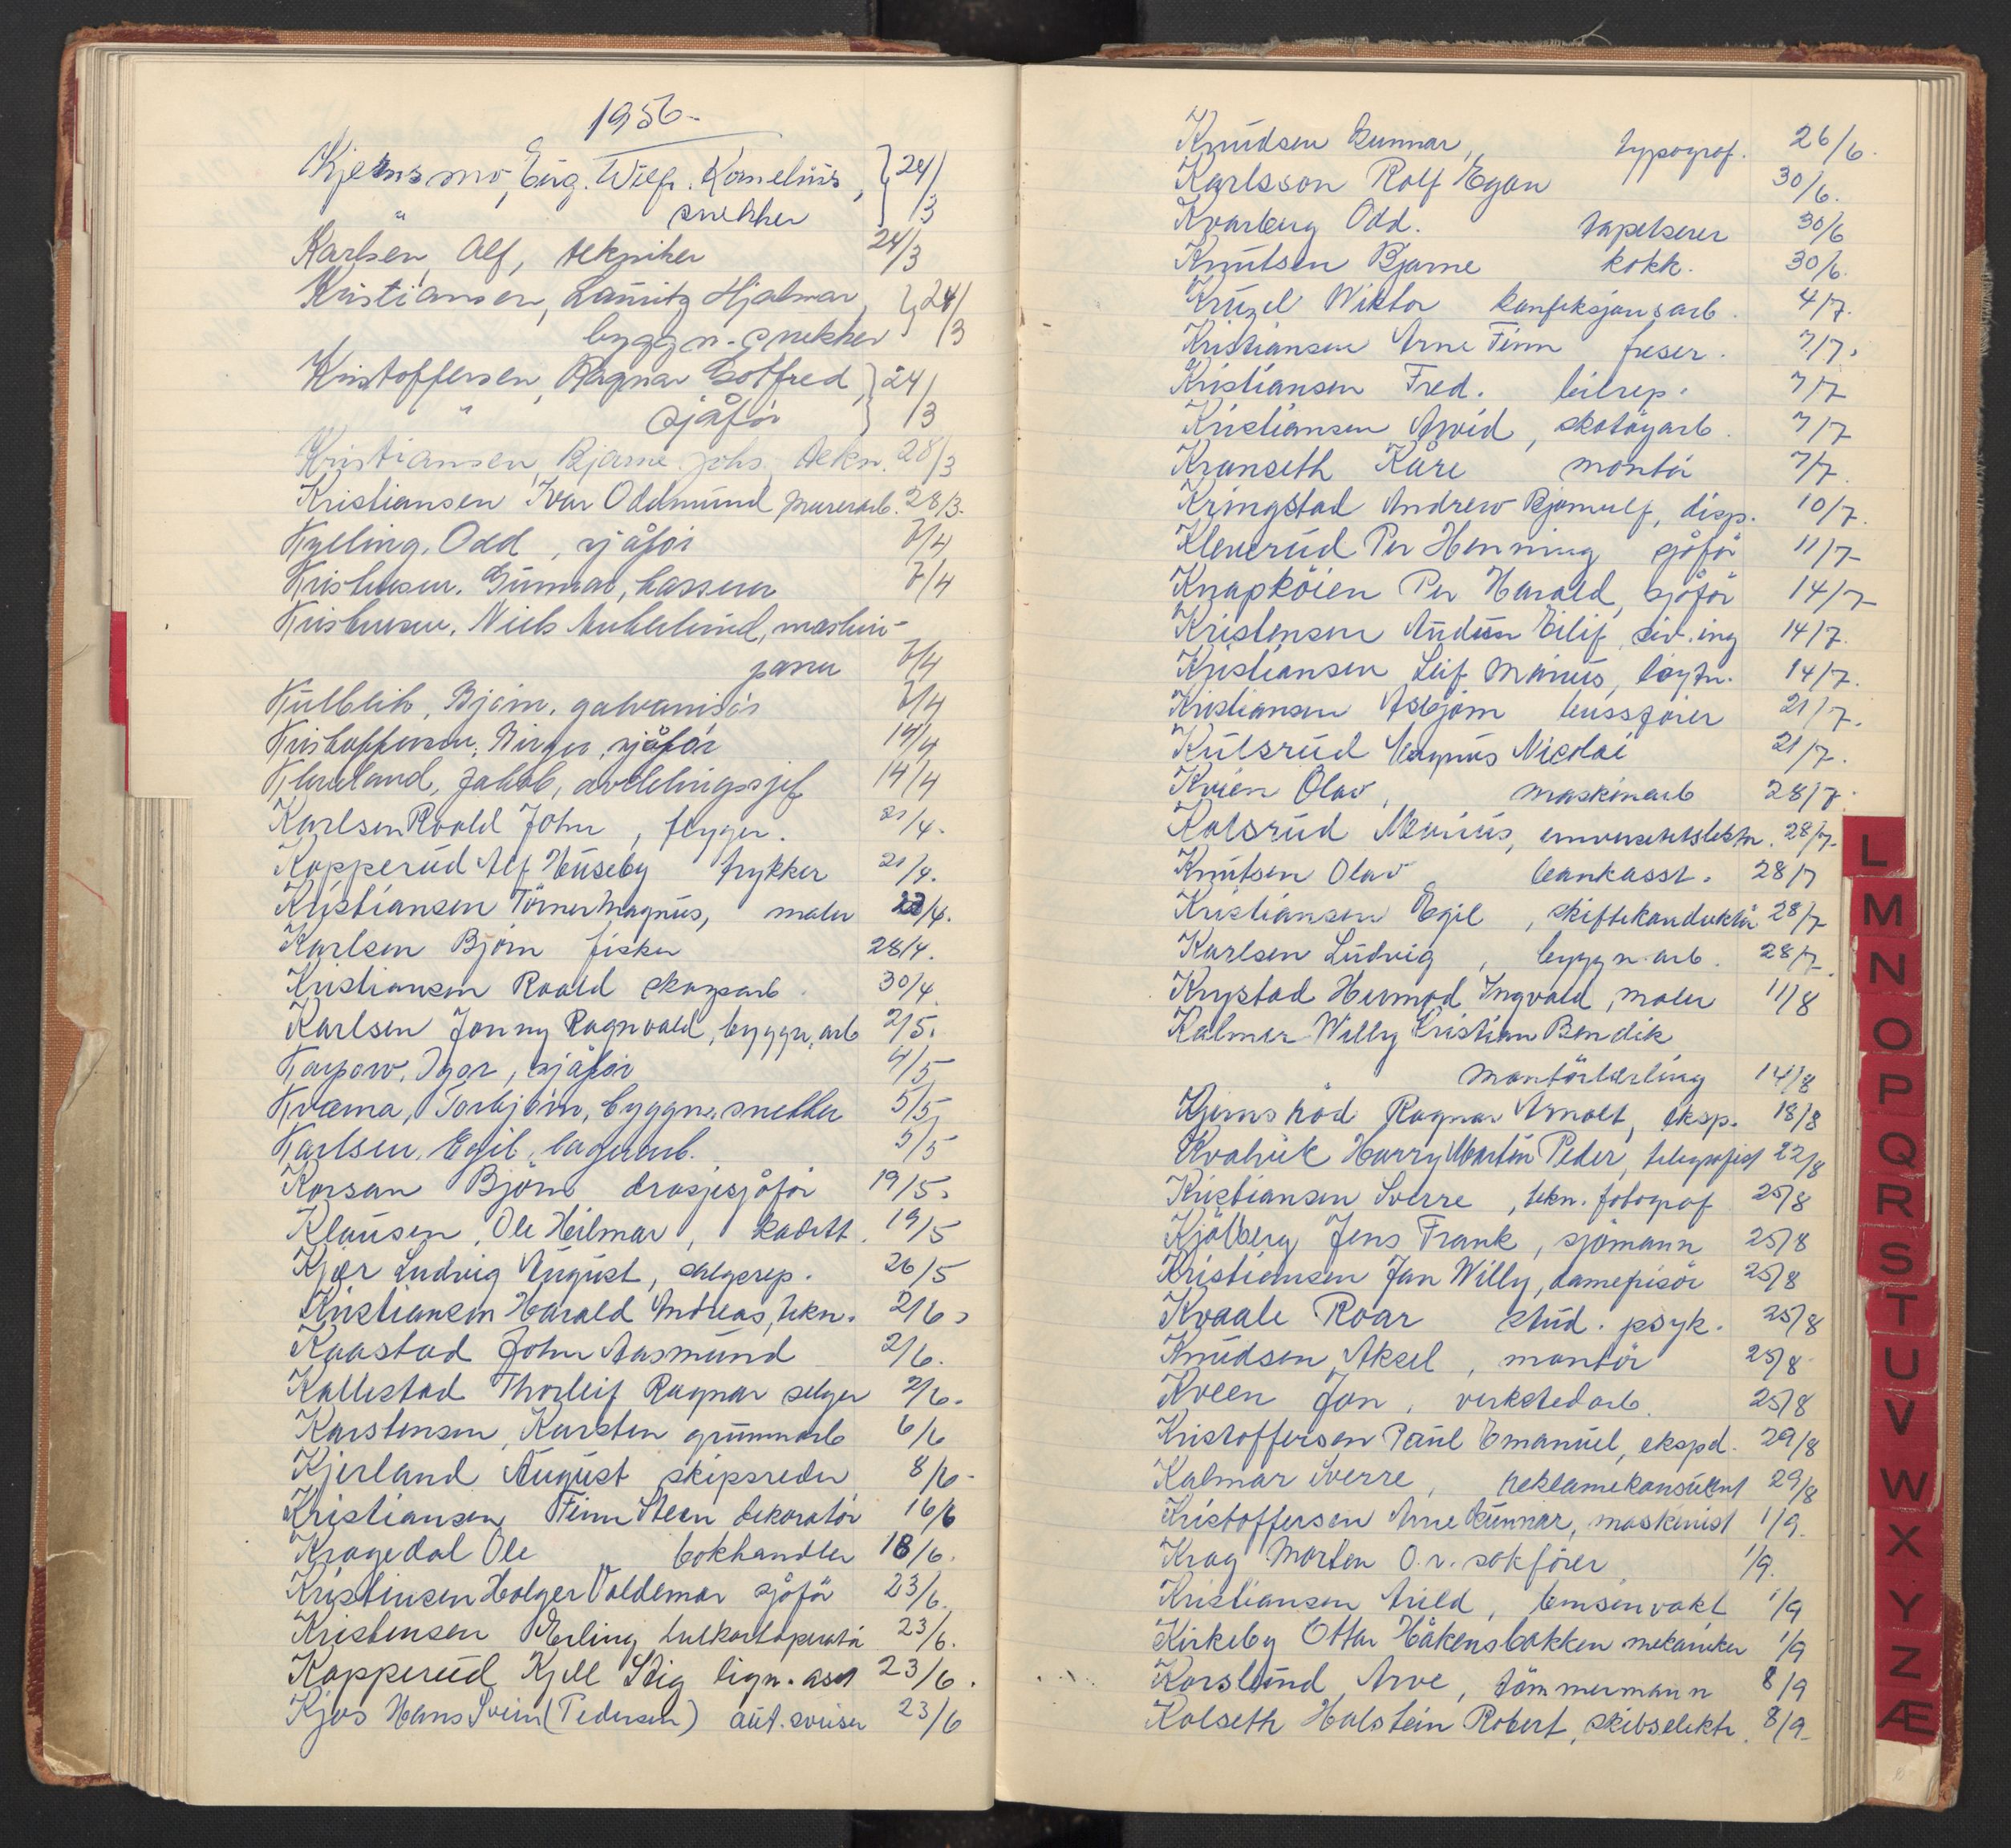 1956.-
Kjernsmo, Eug. Wilh. Kornelius, } 24/
" snekker } /3
Karlsen, Alf, tekniker 24/3
Kristiansen, Lauritz Hjalmar, } 24/
byggn.-snekker } /3
Kristoffersen, Ragnar Gotfred, } 24/
" sjåför } /3
Kristiansen, Bjarne Johs. tekn. 28/3
Kristiansen Ivar Oddmund murerarb. 28/3.
Kylling, Odd, sjåför 7/4
Kristensen, Gunnar, kasserer 7/4
Kristensen, Niels, maskin-
passer 7/4
Kulblik, Björn, galvanisör 7/4
Kristoffersen, Birger, sjåför 14/4
Kleveland, Jakob, avdelingssjef 14/4
Karlsen Roald John, flyger. 21/4.
Kopperud Alf Huseby trykker 21/4.
Kristiansen Törner Magnus, maler 28/4.
Karlsen Björn fisker 28/4.
Kristiansen Roald skogsarb. 30/4.
Karlsen Jonny Ragnvald, byggn. arb 2/5.
Karpow, Igor, sjåför 4/5
Kværna, Torbjörn, byggn.snekker 5/5
Karlsen, Egil, lagerarb. 5/5
Korsan Björn drosjesjåför 19/5.
Klausen, Ole Hilmar, kadett. 19/5
Kjær Ludvig August, salgsrep. 26/5
Kristiansen Harald Andreas, tekn. 2/6
Kaastad John Aasmund 2/6.
Kallestad Thorleif Ragnar selger 2/6.
Karstensen, Karsten grunnarb 6/6
Kjerland August skipsreder 8/6-
Kristiansen, Finn Steen dekoratör 16/6
Kragedal Ole bokhandler 18/6.
Kristensen Holger Valdemar sjåför 23/6.
Kristensen Erling hulkortoperatör 23/6.
Kopperud Kjell Stig lign. asst 23/6.
Kjos Hans Svein (Pedersen) aut. sveiser 23/6
Knudsen Gunnar, typograf. 26/6.
Karlsson Rolf Egon 30/6.
Kvarberg Odd. tapetserer 30/6
Knutsen Bjarne kokk. 30/6.
Kruzel Wiktor konfeksjonsarb. 4/7.
Kristiansen Arne Finn freser. 7/7.
Kristiansen Fred. bilrep. 7/7
Kristiansen Arvid, skotöyarb. 7/7
Kranseth Kåre montör 7/7
Kringstad Andrew Bjornulf, disp. 10/7.
Kleverud Per Henning sjåför 11/7-
Knapköien Per Harald, sjåför 14/7
Kristensen Audun Eilif, siv. ing 14/7.
Kristiansen Leif Marius, löytn. 14/7.
Kristiansen Asbjörn bussförer 21/7.
Kulsrud Magnus Nicolai 21/7.
Kvien Olav, maskinarb 28/7.
Kolsrud Marius, universitetslektor. 28/7.
Knutsen Olav bankasst. 28/7
Kristiansen Egil, skiftekonduktör 28/7
Karlsen Ludvig, byggn. arb. 28/7.
Krystad Hermod Ingvald, maler 11/8
Kalmer Willy Kristian Bendik
montörlærling 14/8
Kjernshöd Ragnar Arnolt, eksp. 18/8
Kvalvik Harry Martin Peder, telegrafist 22/8
Kristiansen Sverre, tekn. fotograf 25/8
Kjölberg Jens Frank, sjömann 25/8
Kristiansen Jan Willy, damefrisör 25/8
Kvaale Roar stud. psyk. 25/8
Knudsen, Aksel, montör 25/8
Kveen Jan, verkstedarb. 25/8
Kristoffersen Paul Emanuel, ekspd. 29/8
Kalmar Sverre, reklamekonsulent 29/8
Kristoffersen Arne Gunnar, maskinist 1/9.
Krag Morten O.r. sakförer 1/9.
Kristiansen Arild, bensinvakt 1/9
Kirkeby Ottar Håkensbakken mekaniker 1/9
Korslund Arve, tömmermann 8/9
Kolseth Halstein Robert, skibselektr. 8/9-
L
M
N
O
P
Q
R
S
T
U
V
W
X
Y
Z
Æ